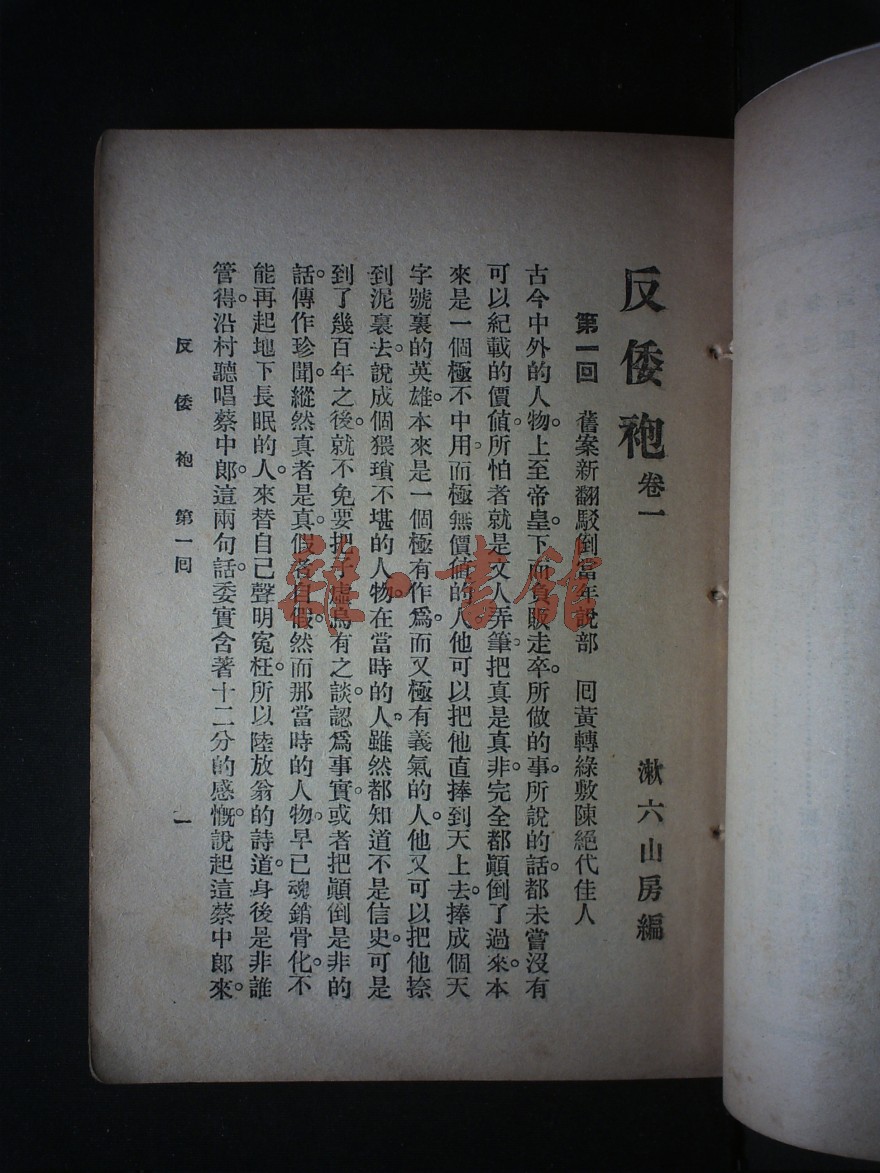 反倭袍卷一
漱六山房編
第一回 舊案新翻駁倒當年說部 囘黃轉綠敷陳絕代佳人
古今中外的人物。上至帝皇。下而負販走卒。所做的事。所說的話。都未嘗沒有
可以紀載的價値。所怕者就是文人弄筆。把真是真非。完全都顚倒了過來。本
來是一個極不中用。而極無價値的人。他可以把他直捧到天上去。捧成個天
字號裏的英雄。本來是一個極有作爲。而又極有義氣的人。他又可以把他捺
到泥裏去。說成個猥瑣不堪的人物。在當時的人。雖然都知道不是信史。可是
到了幾百年之後。就不免要把子虛烏有之談。認爲事實。或者把顚倒是非的
話。傳作珍聞。縱然真者是真。假者自假。然而那當時的人物。早已魂銷骨化。不
能再起地下長眠的人。來替自己聲明冤枉。所以陸放翁的詩道。身後是非誰
管得。沿村聽唱蔡中郎。這兩句話。委實含著十二分的感慨。說起這蔡中郎來。
反倭袍 第一囘 一
雜·書館